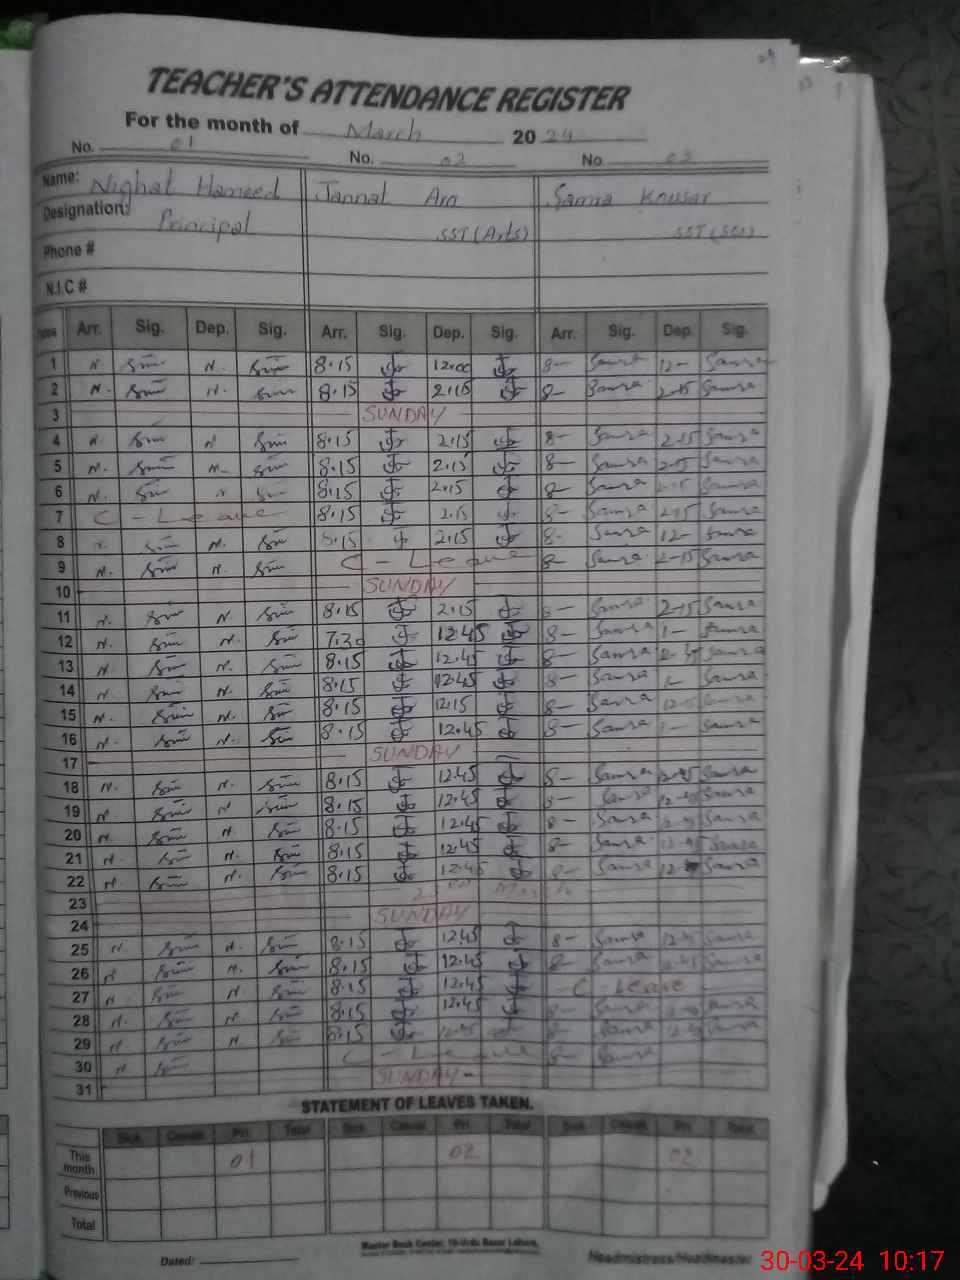 TEACHER'S ATTENDANCE REGISTER
For the month of March 2024
No. 01 No. 02 No. 03
Name: Nighat Hameed Jannat Ara Samra Kousar
Designation: Principal SST (Arts)
Phone #
N.I.C #
Arr. Sig. Dep. Sig. Arr. Sig. Dep. Sig. Arr. Sig. Dep. Sig.
1 N. N. 8.15 12.00 8- Samra 12- Samra
2 N. N. 8.15 2.15 8- Samra 2-15 Samra
3 SUNDAY
4 N. N 8.15 2.15 8- Samra 2-15 Samra
5 N. N- 8.15 2.15 8- Samra 2-15 Samra
6 N. N 8.15 2.15 8- Samra 2-15 Samra
7 C-Leave 8.15 2.15 8- Samra 2-15 Samra
8 N. 8.15 2.15 8- Samra 12- Samra
9 N. N. C-Leave 8- Samra 2-15 Samra
10 SUNDAY
11 N. N. 8.15 2.15 8- Samra 2-15 Samra
12 N. N. 7.30 12.45 8- Samra 1- Samra
13 N. N. 8.15 12.45 8- Samra Samra
14 N. N. 8.15 12.45 8- Samra Samra
15 N. N. 8.15 12.15 8- Samra 12-15 Samra
16 N. N. 8.15 12.45 8- Samra 1- Samra
17 SUNDAY
18 N. N. 8.15 12.45 8- Samra 12-45 Samra
19 N N 8.15 12.45 8- Samra 12-45 Samra
20 N. N. 8.15 12.45 8- Samra Samra
21 N. N. 8.15 12.45 8- Samra 12-45 Samra
22 N N. 8.15 12.45 8- Samra 12- Samra
23 March
24 SUNDAY
25 N. N. 8.15 12.45 8- Samra 12-45 Samra
26 N N. 8.15 12.45 8- Samra Samra
27 N. N. 8.15 12.45 C-Leave
28 N. N. 8.15 12.45 8- Samra Samra
29 N N 8.15 12.45 8- Samra Samra
30 N C-Leave 8- Samra
31 SUNDAY
STATEMENT OF LEAVES TAKEN.
Sick Casual Pri. Total Sick Casual Pri. Total Sick Casual Pri. Total
This month 01 02 02
Previous
Total
Master Book Center, 19-Urdu Bazar Lahore.
Dated: Headmistress/Headmaster
30-03-24 10:17